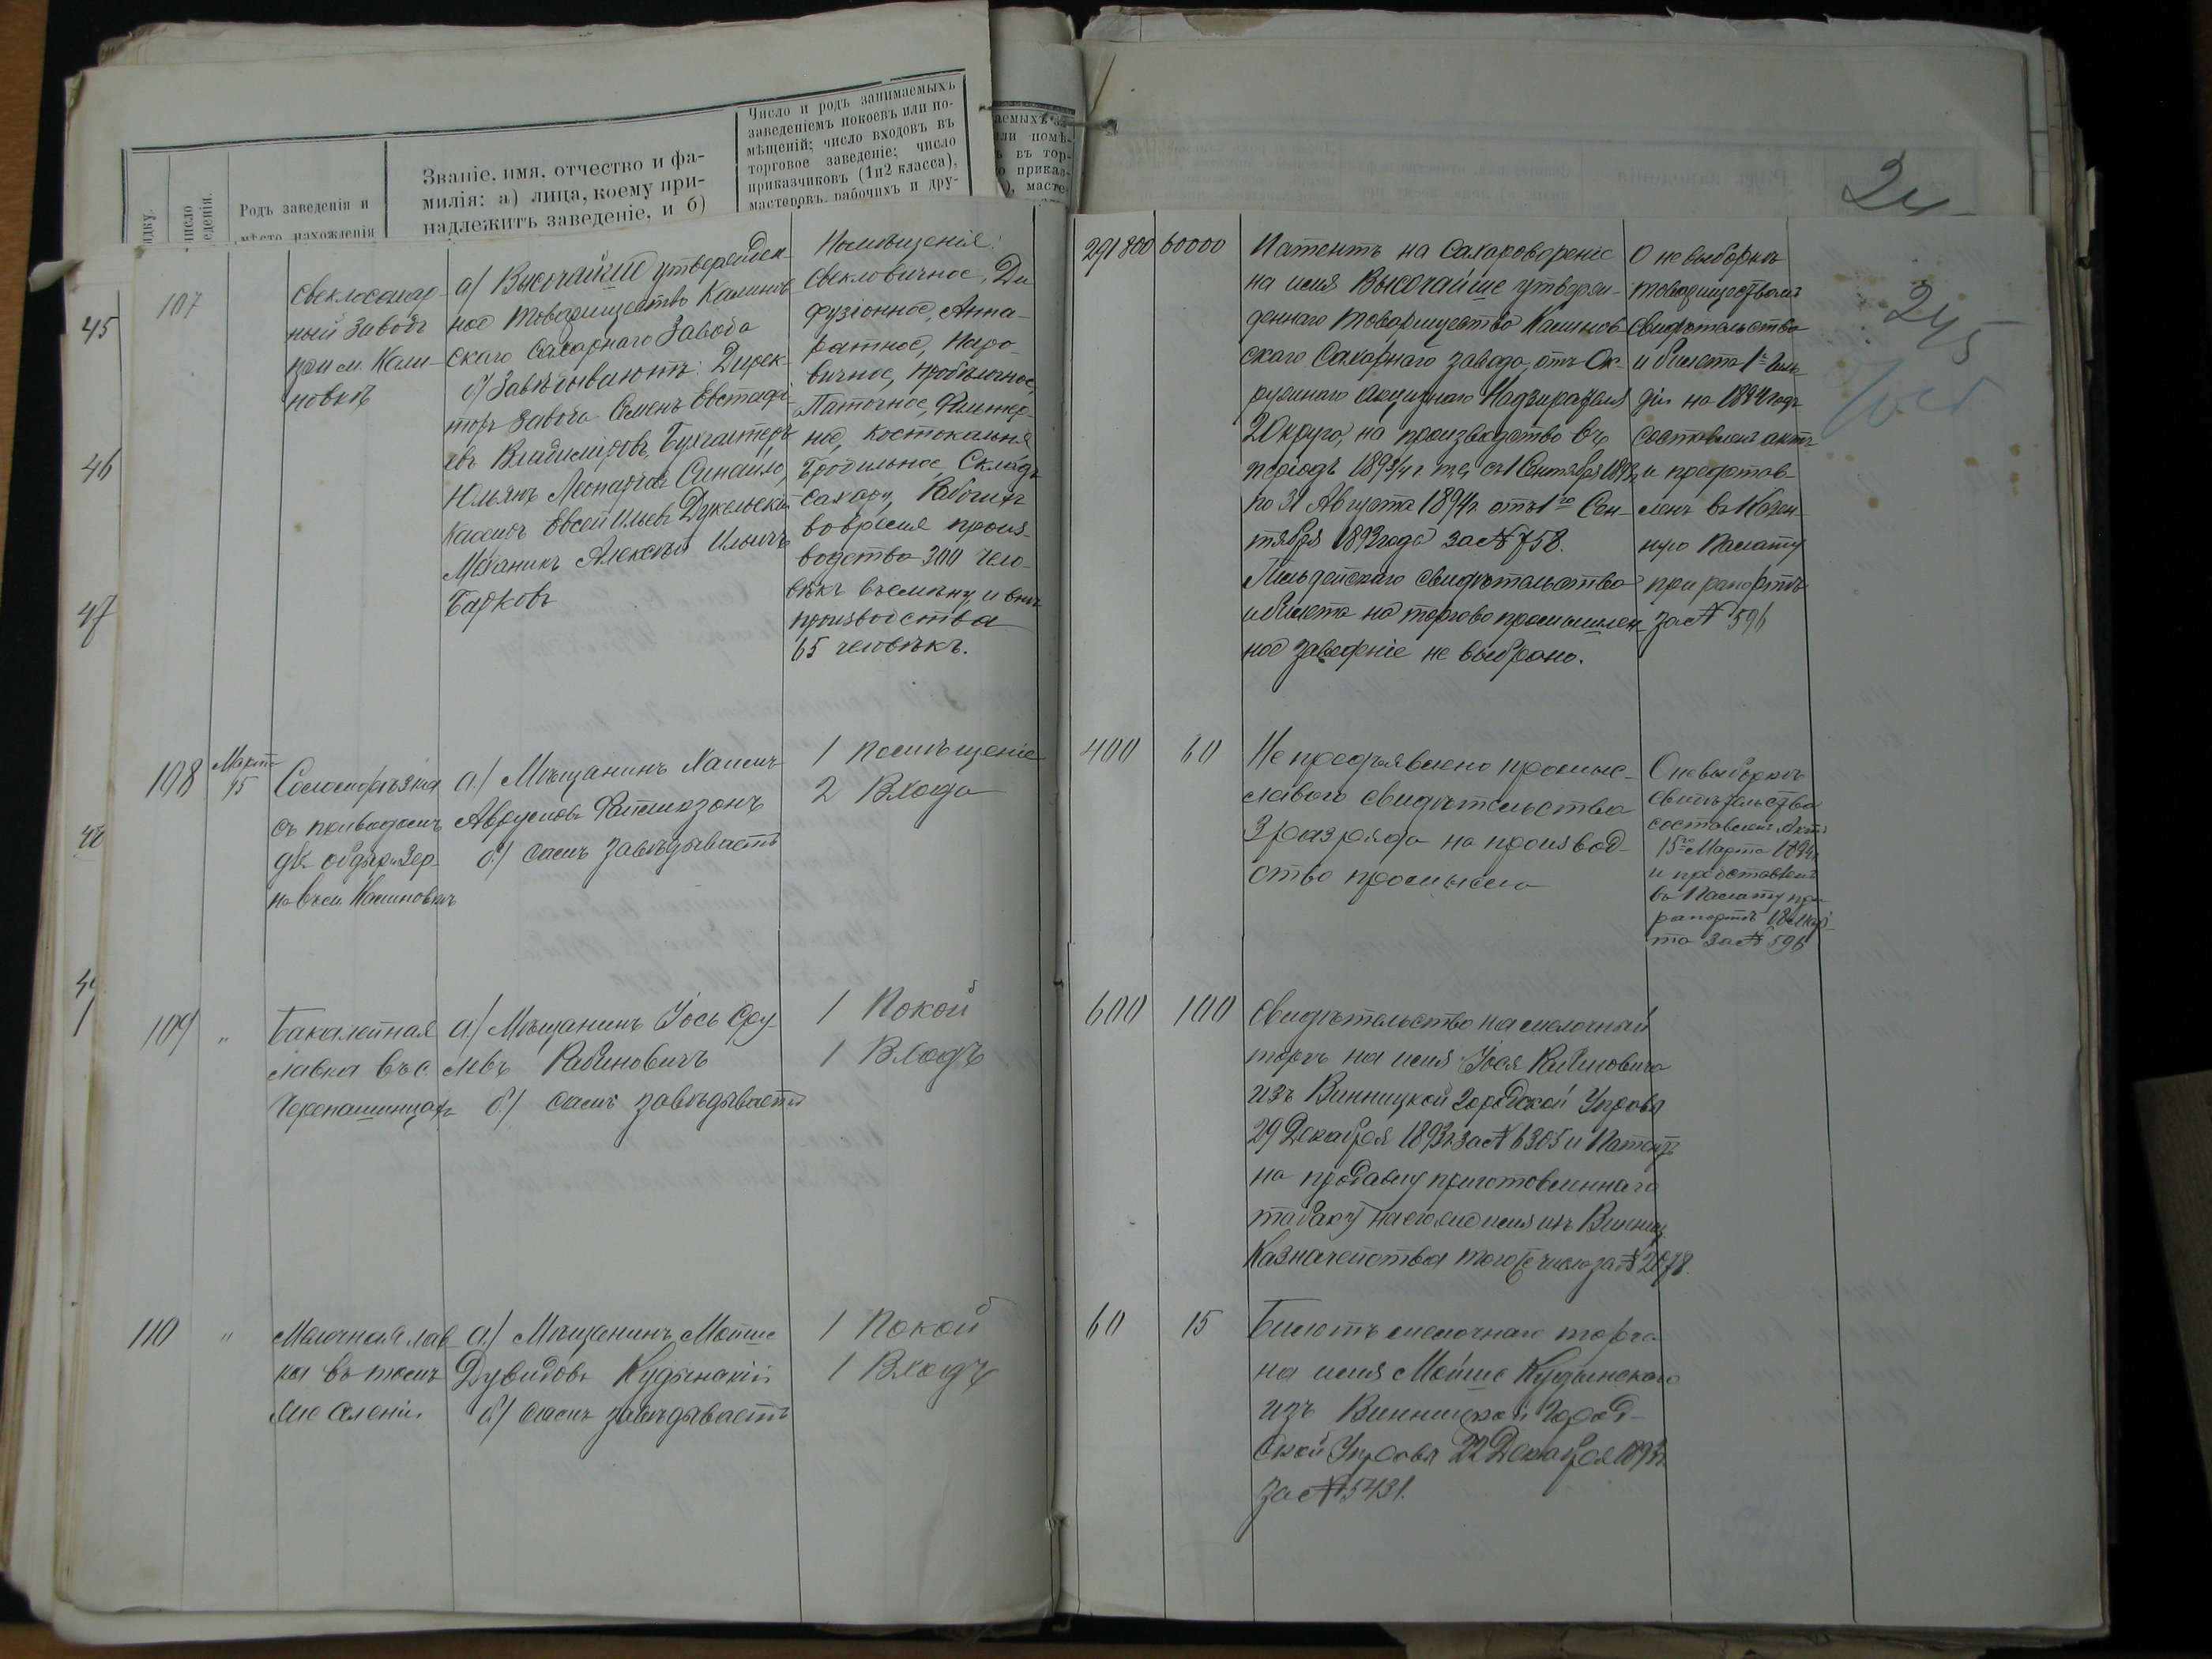 Число и родъ занимаемыхъ
заведеніемъ покоевъ или по-
мѣщеній; число входовъ въ
торговое заведеніе; число
приказчиковъ (1и2 класса),
мастеровъ, рабочихъ и дру-
Званіе, имя, отчество и фа-
милія: а) лица, коему при-
надлежитъ заведеніе, и б)
Родъ заведенія и
мѣсто нахожденія
24
245
45
46
47
48
107
Свеклосахар
ный заводъ
при м. Кали-
новкѣ
а) Высочайше утвержден-
ное товарищество Калинов
скаго Сахарнаго Завода
б) Завѣдываютъ: Дирек-
торъ Завода Семенъ Евстафі
евъ Владиміровъ, Бухгалтеръ
Юльянъ Леонардовъ
Кассиръ Евсей Ильевъ Дукельскій
Механикъ Алексѣй Ильичъ
Барковъ
Помѣщенія:
Свекловичное, Ди
фузіонное, Аппа-
ратное, Паро-
вичное, Пробѣлочное,
Паточное, Фильтер-
ное, Костокальня
Бродильное, Складъ
сахару, Рабочихъ
во время произ-
водства 300 чело-
вѣкъ въ смѣну, и внѣ
производства
65 человѣкъ.
291800
60000
Патентъ на Сахаровареніе
на имя Высочайше утверж-
деннаго Товарищества Калинов
скаго Сахарнаго завода, отъ Ок-
ружнаго Акцизнаго Надзирателя
2 округа, на производство въ
періодъ 1893/4 г. т.е. съ 1 Сентября 1893 г.
по 31 Августа 1894 г. отъ 1го Сен-
тября 1893 года за № 758.
Гильдейскаго свидѣтельства
и билета на торгово промышлен
ное заведеніе не выбрано.
О невыборкѣ
товариществомъ
свидѣтельства
и билета 1й гиль-
діи на 1894 годъ
составленъ актъ
и представ-
ленъ въ Казен-
ную Палату
при рапортѣ
за № 596
108
Марта
15
Соломорѣзка
съ приводомъ
для обдир. зер-
на въ м. Калиновкѣ
а.) Мѣщанинъ Хаимъ
Аврумовъ
б.) самъ завѣдываетъ
1 Помѣщеніе
2 Входа
400
60
Не предъявлено промыс-
лового свидѣтельства
3 разряда на производ-
ство промысла
О невыборкѣ
свидѣтельства
составленъ актъ
15го Марта 1894 г.
и представленъ
въ Палату при
рапортѣ 18 Мар-
та за № 596
109
"
Бакалейная
лавка въ с.
Черепашинцахъ
а.) Мѣщанинъ Іось Сру
левъ Рабиновичъ
б.) самъ завѣдываетъ
1 Покой
1 Входъ
600
100
Свидѣтельство на мелочный
торгъ на имя Іося Рабиновича
изъ Винницкой Городской Управы
29 Декабря 1893 г. за № 6305 и Патентъ
на продажу приготовленнаго
табаку на его же имя изъ Винниц.
Казначейства того же числа за № 2678.
110
"
Мелочная лав
ка въ томъ
же селеніи
а.) Мѣщанинъ Мойше
Дувидовъ Кудынскій
б.) самъ завѣдываетъ
1 Покой
1 Входъ
60
15
Билетъ мелочнаго торга
на имя Мойше Кудынскаго
изъ Винницкой Город-
ской Управы 22 Декабря 1893 г.
за № 5431.